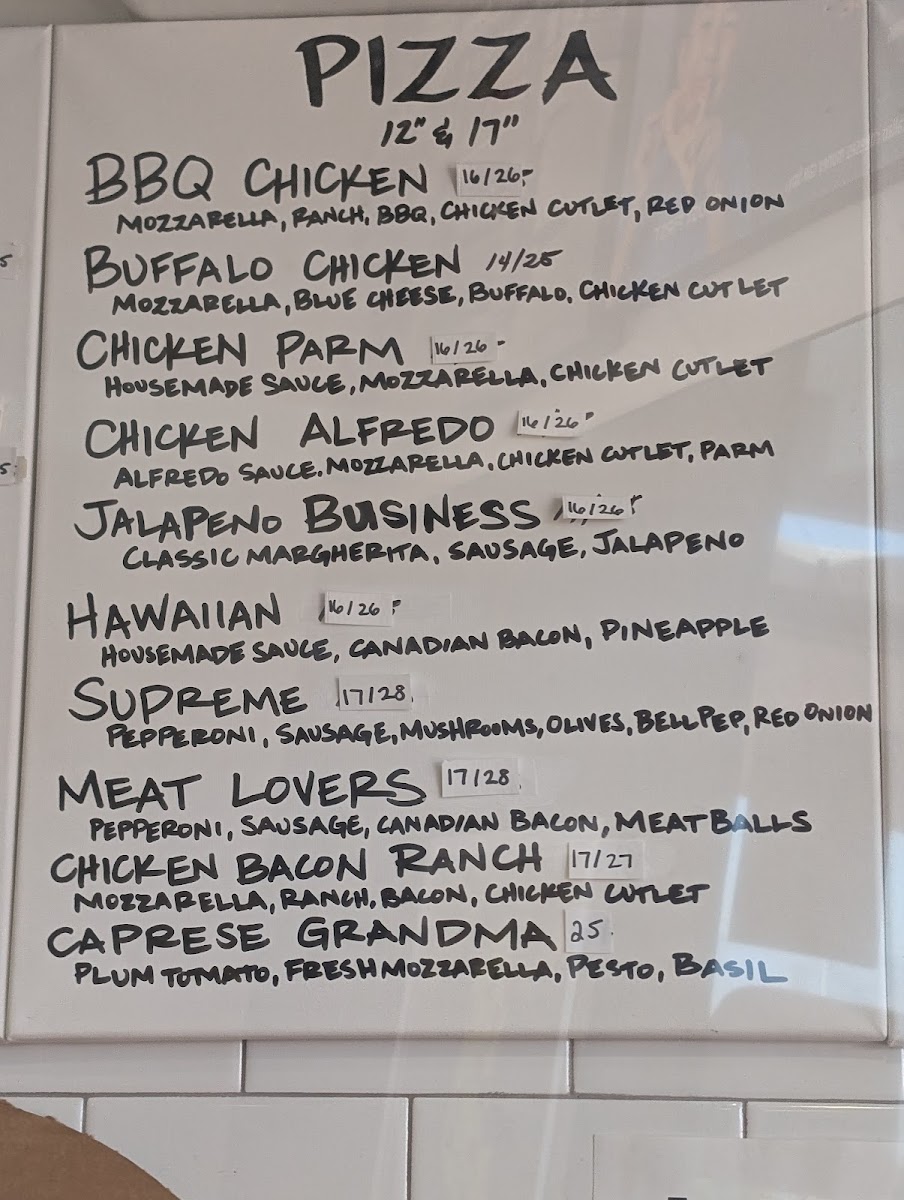 PIZZA
12" & 17"
BBQ CHICKEN 16/26
MOZZARELLA, RANCH, BBQ, CHICKEN CUTLET, RED ONION
BUFFALO CHICKEN 14/25
MOZZARELLA, BLUE CHEESE, BUFFALO, CHICKEN CUTLET
CHICKEN PARM 16/26
HOUSEMADE SAUCE, MOZZARELLA, CHICKEN CUTLET
CHICKEN ALFREDO 16/26
ALFREDO SAUCE. MOZZARELLA, CHICKEN CUTLET, PARM
JALAPENO BUSINESS 16/26
CLASSIC MARGHERITA, SAUSAGE, JALAPENO
HAWAIIAN 16/26
HOUSEMADE SAUCE, CANADIAN BACON, PINEAPPLE
SUPREME 17/28
PEPPERONI, SAUSAGE, MUSHROOMS, OLIVES, BELL PEP, RED ONION
MEAT LOVERS 17/28
PEPPERONI, SAUSAGE, CANADIAN BACON, MEATBALLS
CHICKEN BACON RANCH 17/27
MOZZARELLA, RANCH, BACON, CHICKEN CUTLET
CAPRESE GRANDMA 25
PLUM TOMATO, FRESH MOZZARELLA, PESTO, BASIL